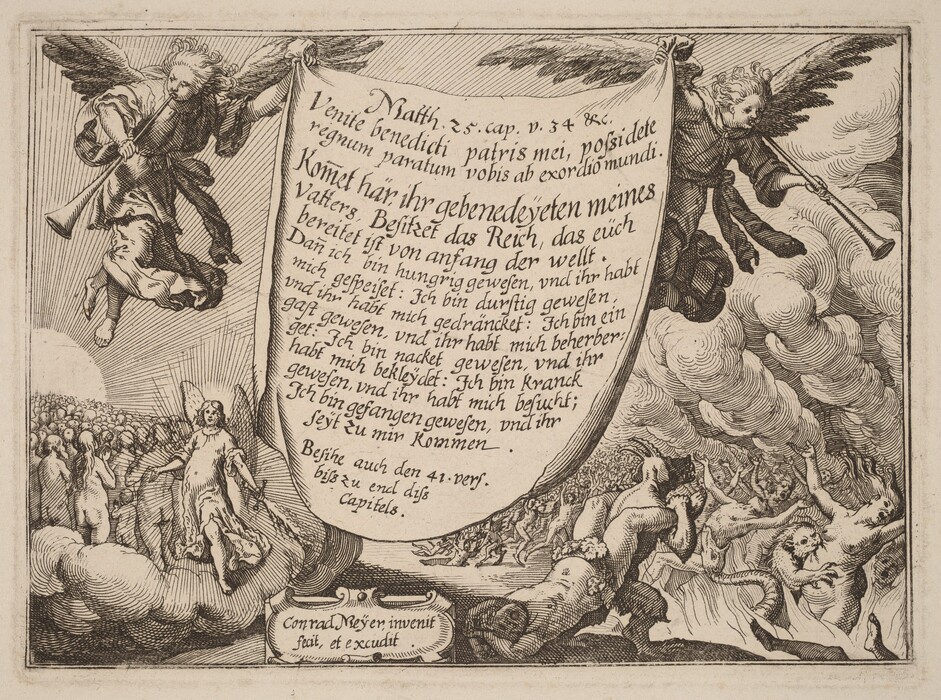 Matth. 25. cap. v. 34 &c.
Venite benedicti patris mei, possidete
regnum paratum vobis ab exordio mundi.
Kom̄et här, ihr gebenedeÿeten meines
Vatters, Besitzet das Reich, das eüch
bereitet ist von anfang der wellt.
Dan̄ ich bin hungrig gewesen, vnd ihr habt
mich gespeiset: Ich bin durstig gewesen,
vnd ihr habt mich gedräncket: Ich bin ein
gast gewesen, vnd ihr habt mich beherber-
get: Ich bin nacket gewesen, vnd ihr
habt mich bekleÿdet: Ich bin Kranck
gewesen, vnd ihr habt mich besucht;
Ich bin gefangen gewesen, vnd ihr
seÿt zu mir Kommen.
Besihe auch den 41. vers.
biß zu end diß
Capitels.
Conrad Meÿer invenit
fecit, et excudit